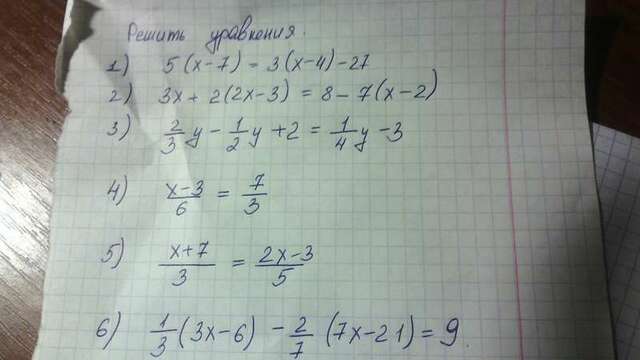 Решить уравнения.
1) 5(x-7) = 3(x-4)-27
2) 3x + 2(2x-3) = 8 - 7(x-2)
3) 2/3 y - 1/2 y + 2 = 1/4 y - 3
4) x-3/6 = 7/3
5) x+7/3 = 2x-3/5
6) 1/3 (3x-6) - 2/7 (7x-21) = 9.